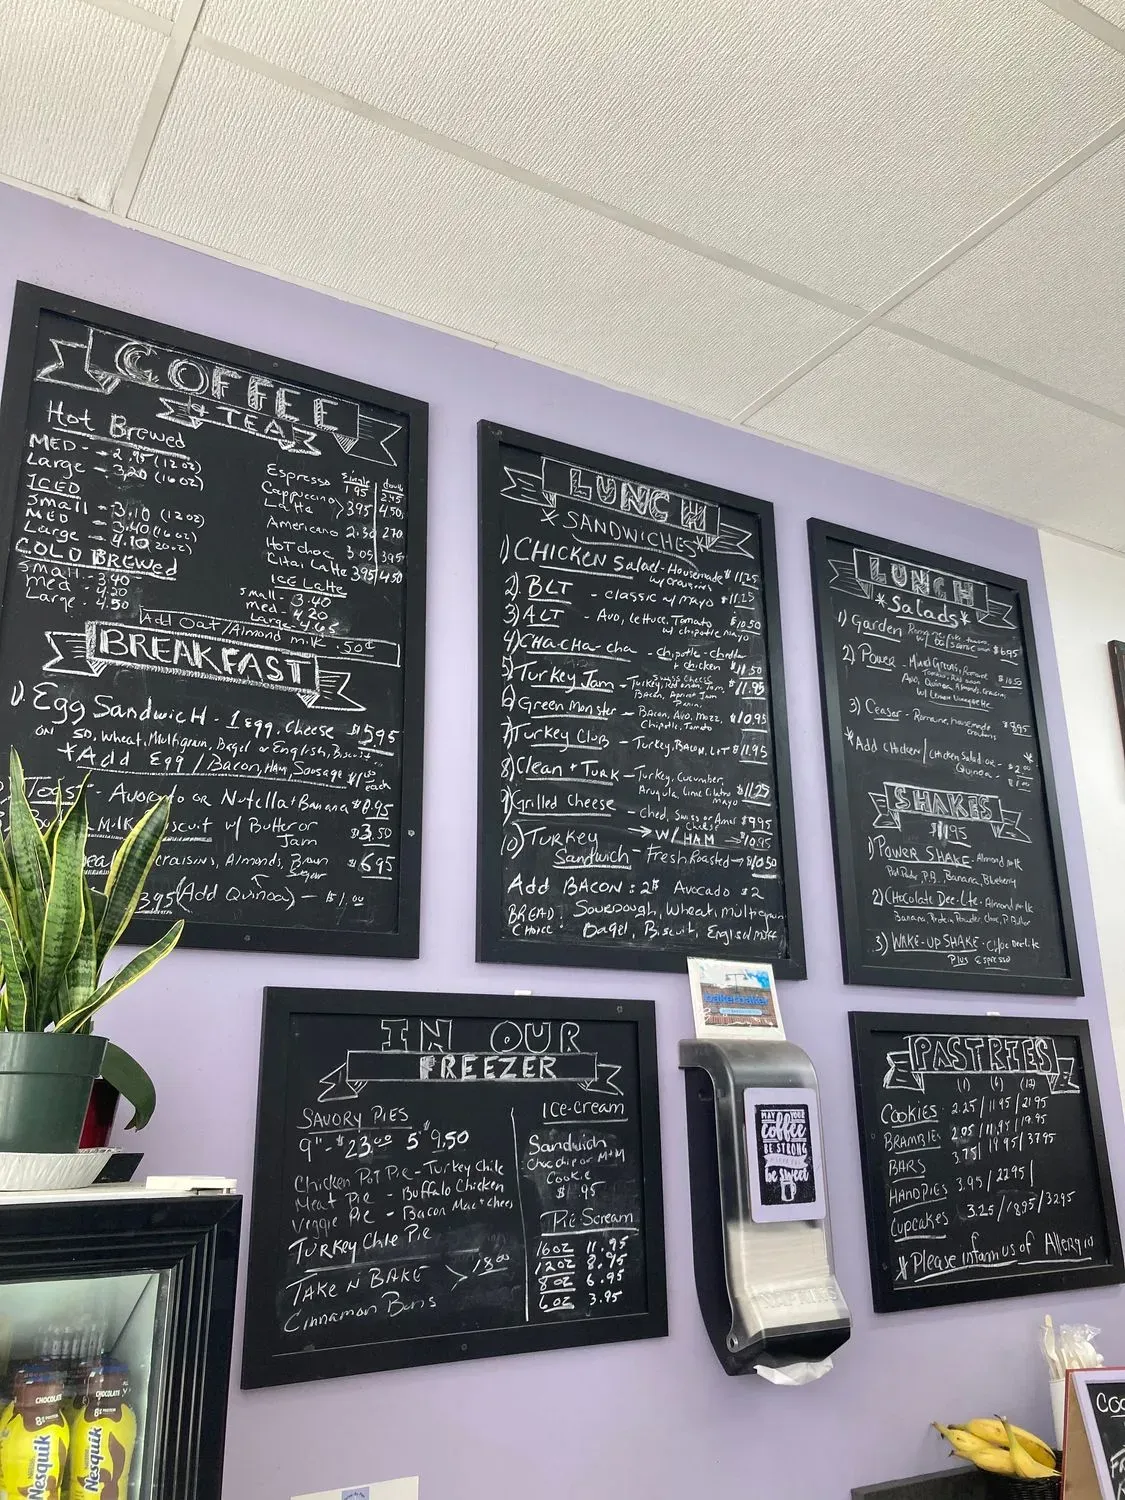 COFFEE
& TEA
Hot Brewed
MED - 2.95 (12 oz)
Large - 3.20 (16 oz)
ICED
Small - 3.10 (12 oz)
MED - 3.40 (16 oz)
Large - 4.10 (20 oz)
COLD BREWED
Small - 3.40
Med - 4.20
Large - 4.50
single double
Espresso 1.95 2.45
Cappuccino
Latte > 3.95 4.50
Americano 2.30 2.70
Hot choc 3.05 3.95
Chai Latte 3.95 4.50
ICE Latte
Small - 3.40
med - 4.20
Large - 4.65
Add Oat/Almond milk .50¢
BREAKFAST
1). Egg Sandwich - 1 egg, cheese $5.95
on SD, Wheat, Multigrain, Bagel or English, Biscuit
*Add Egg/Bacon, HAM, Sausage $1.00 each
Toast - Avocado or Nutella + Banana $8.95
Milk Biscuit w/ Butter or Jam $3.50
craisins, Almonds, Brown Sugar $6.95
3.95 (Add Quinoa) - $1.00
LUNCH
*SANDWICHES*
1) CHICKEN Salad - Housemade w/ craisins $11.25
2) BLT - classic w/ mayo $11.25
3) ALT - Avo, lettuce, Tomato w/ chipotle mayo $10.50
4) CHa-CHa-cha - chipotle-cheddar + chicken $11.50
5) Turkey Jam - Turkey, Swiss Cheese, Red onion, Tom, Bacon, Apricot Jam Panini $11.95
6) Green Monster - Bacon, Avo, Mozz, Chipotle, Tomato $10.95
7) Turkey Club - Turkey, Bacon, L+T $11.95
8) Clean + Turk - Turkey, Cucumber, Arugula, Lime Cilantro mayo $11.25
9) Grilled Cheese - Ched, Swiss or Amer Cheese $9.95
→ W/ HAM → $10.95
10) Turkey Sandwich - Fresh Roasted → $10.50
Add BACON: 2$ Avocado $2
BREAD CHOICE: Sourdough, Wheat, multigrain
Bagel, Biscuit, English Muff
LUNCH
*Salads*
1) Garden $6.95
2) Power - Mixed Greens, Romaine $10.50
Avo, Quinoa, Almonds, Craisins
w/ Lemon Vinaigrette
3) Ceaser - Romaine, housemade croutons $7.95
*Add CHICKEN/Chicken Salad or - $2.00 *
Quinoa - $1.00
SHAKES
1) Power SHAKE - Almond milk
P.B., Banana, Blueberry
2) CHocolate Dee-Lite - Almond milk
Banana, Protein Powder, Choc, P. Butter
3) WAKE-UP SHAKE - Choc Dee-lite
Plus Espresso
IN OUR
FREEZER
SAVORY PIES
9" - $23.00 5" $9.50
Chicken Pot Pie - Turkey Chile
Meat Pie - Buffalo Chicken
Veggie Pie - Bacon Mac + Chees
Turkey Chle Pie
TAKE N BAKE
Cinnamon Buns > 18.00
Ice-Cream
Sandwich
Choc chip or M+M
Cookie
Pie Scream
16oz 11.95
12oz 8.95
8oz 6.95
6oz 3.95
MAY YOUR
coffee
BE STRONG
be sweet
PASTRIES
(1) (6) (12)
COOKIES 2.25/11.95/21.95
BRAMBLES 2.05/11.95/19.95
BARS 3.75/19.95/37.95
HANDPIES 3.95/22.95/
Cupcakes 3.25/18.95/32.95
*Please inform us of Allergin
CHOCOLATE
Nesquik
CHOCOLATE
Nesquik